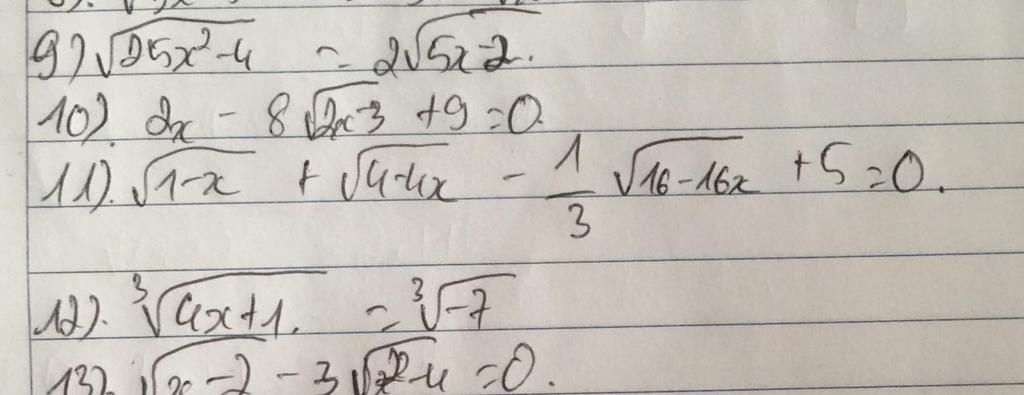 9) √25x²-4 = 2√5x-2.
10). 2x - 8√2x-3 +9=0.
11). √1-x + √4-4x - 1/3 √16-16x +5=0.
12). ³√4x+1. = ³√-7
13). √x-2 - 3√x²-4 =0.